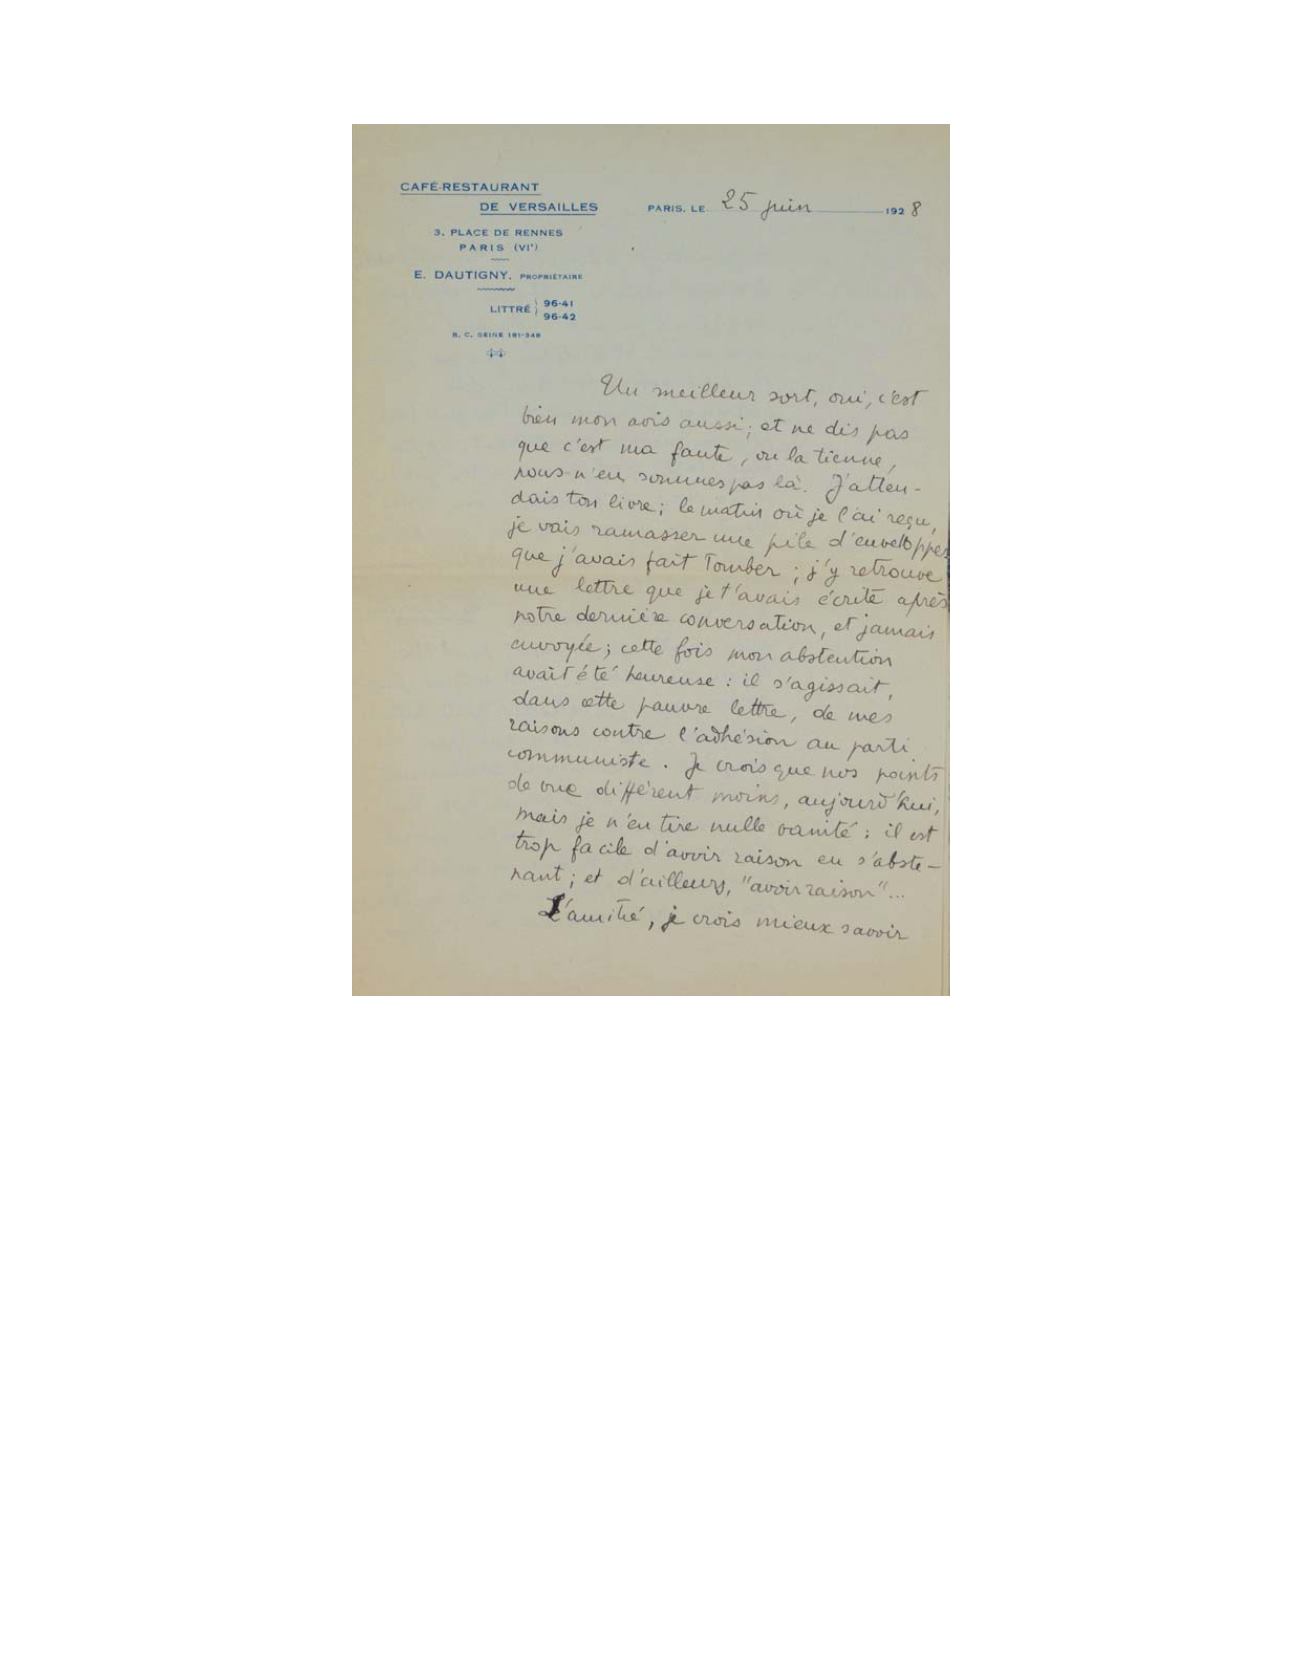 CAFÉ-RESTAURANT
DE VERSAILLES
3. PLACE DE RENNES
PARIS (VIᵉ)
E. DAUTIGNY. PROPRIÉTAIRE
LITTRÉ } 96-41
96-42
R. C. SEINE 181-348
PARIS, LE 25 juin 1928
Un meilleur sort, oui, c'est
bien mon avis aussi; et ne dis pas
que c'est ma faute, ou la tienne,
nous n'en sommes pas là. J'atten-
dais ton livre; le matin où je l'ai reçu,
je vais ramasser une pile d'enveloppes
que j'avais fait tomber; j'y retrouve
une lettre que je t'avais écrite après
notre dernière conversation, et jamais
envoyée; cette fois mon abstention
avait été heureuse: il s'agissait,
dans cette pauvre lettre, de mes
raisons contre l'adhésion au parti
communiste. Je crois que nos points
de vue diffèrent moins, aujourd'hui,
mais je n'en tire nulle vanité: il est
trop facile d'avoir raison en s'abste-
nant; et d'ailleurs, "avoir raison"...
L'amitié, je crois mieux savoir